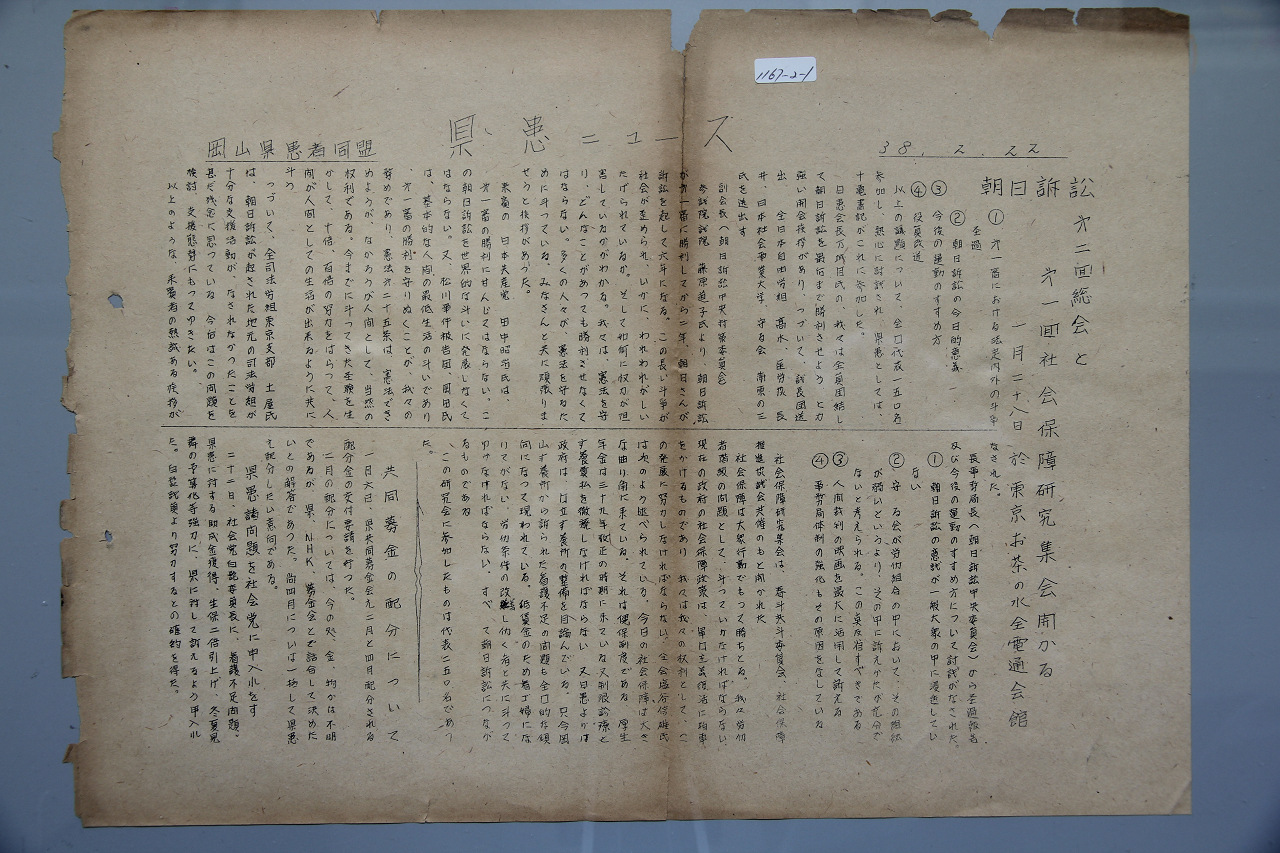 1167-2-1
県患ニュース
38.2.22
岡山県患者同盟
朝日訴訟 才二回総会と
才一回社会保障研究集会開かる
一月二十八日 於東京お茶の水全電通会館
① 才一審における法廷内外の斗争
経過
② 朝日訴訟の今日的意義
③ 今後の運動のすすめ方
④ 役員改選
以上の議題について、全国代表一五〇名
参加し、熱心に討議され、県患としては、
十意書記がこれに参加した。
日患会長万城目氏の、我々は全員団結し
て朝日訴訟を最后まで勝利させよう と力
強い開会挨拶があり、つづいて、議長団選
出 全日本自由労組
井、日本社会事業大学、守る会 南原の三
氏を選出す
副会長へ朝日訴訟中央対策委員会
参議院議院 藤原道子氏より、朝日訴訟
が才一審に勝利してから二年、朝日さんが
訴訟を起して六年になる。この長い斗争が
社会が歪められ、いかに、われわれがしい
たげられているか。そして如何に权力が担
害しているかがわかる。我々は、憲法を守
り、どんなことがあっても勝利させなくて
はならない。多くの人々が、憲法を守るた
めに斗っている。みなさんと共に頑張りま
せうと挨拶があった。
来賓の 日本共産党 田中昭治氏は、
才一審の勝利に甘んじてはならない、こ
の朝日訴訟を世界的な斗いに発展しなくて
はならない。又、松川事件被告団、岡田氏
は、基本的な人間の最低生活の斗いであり
、才一審の勝利を守りぬくことが、我々の
努めであり、憲法才二十五条は、憲法でき
めようが、なかろうが人間として、当然の
权利である。今までに斗ってきた経験を生
かして、十倍、百倍の努力をはらって、人
間が人間としての生活が出来るように共に
斗う
つづいて、全司法労組東京支部 土屋氏
は、朝日訴訟が起された地元の司法労組が
十分な支援活動が、なされなかったことを
甚だ残念に思っている 今后はこの問題を
検討、支援態勢にもってゆきたい。
以上のような、来賓者の熱誠ある挨拶が
なされた。
長事務局長へ朝日訴訟中央委員会)から経過報告
及び今後の運動のすすめ方について討議がなされた。
① 朝日訴訟の意義が一般大衆の中に浸透してい
ない
② 守る会が労仂組合の中において、その組織
が弱いというより、その中に訴えかたが充分で
ないと考えられる。この点反省すべきである
③ 人間裁判の映画を最大に活用して訴える
④ 事務局体制の強化もその原因をなしている
社会保障研究集会は、春斗共斗委員会、社会保障
推進協議会共催のもと開かれた
社会保障は大衆行動でもって勝ちとる。我々労仂
者階級の問題として、斗っていかなければならない、
現在の政府の社会保障政策は、軍国主義復活に拍車
をかけるものであり 我々は我々の权利として、こ
の発展に努力しなければならない。全会塩谷信雄氏
は次のように述べられている。今日の社会保障は大き
な曲り角に来ている。それは健保制度である 厚生
年金は三十九年改正の時期に来ている又制限診療と
す養費払を徹廃しなければならない 又日患よりは
政府は、国立す養所の整備を目論んでいる。只今岡
山す養所から訴られた看護不足の問題も全国的な傾
向になって現われている。低賃金のため看ゴ婦にな
りてがない、労仂条件の改善し仂く者と共に斗って
ゆけなければならない、すべて朝日訴訟につなが
るものである
、この研究会に参加したものは代表二五〇名であっ
た。
共同募金の配分について
一月六日、県共同募金会え二月と四月配分される
配分金の交付要請を行った。
二月の配分については、今の処、金一封かは不明
であるが、県、NHK、募金会とで話合して決めた
いとの解答であった。尚四月については一括して県患
え配分したい意向である。
県患諸問題を社会党に申入れをす
二十二日、社会党白髭委員長に、看護不足問題、
県患に対する助成金獲得、生保二倍引上げ、冬夏見
舞の予算化等強力に、県に対して訴えるよう申入れ
た。白髭議員より努力するとの確約を得た。